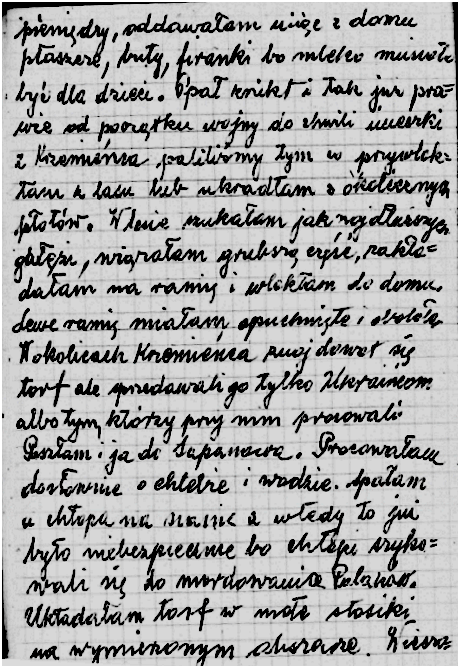 pieniędzy, oddawałam więc z domu
płaszcze, buty, firanki bo mleko musiało
być dla dzieci. Opał znikł i tak już pra=
wie od początku wojny do chwili ucieczki
z Krzemieńca paliliśmy tym co przywlok=
łam z lasu lub ukradłam z okolicznych
płotów. W lesie szukałam jak najdłuższych
gałęzi, wiązałam grubszą część, zakła=
dałam na ramię i wlokłam do domu.
Lewe ramię miałam opuchnięte i obolałe
W okolicach Krzemieńca znajdował się
torf ale sprzedawali go tylko Ukraińcom
albo tym, którzy przy nim pracowali
Poszłam i ja do Sapanowa. Pracowałam
dosłownie o chlebie i wodzie. Spałam
u chłopa na sianie a wtedy to już
było niebezpiecznie bo chłopi szyko=
wali się do mordowania Polaków.
Układałam torf w małe stosiki
na wymierzonym obszarze.